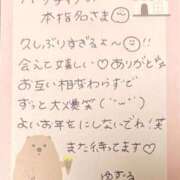 本指名さま
久しぶりすぎるよ〜!!
会えて嬉しい♡ありがと
お互い相かわらずで
ずっと大爆笑(¨)
よいお年をにしないでね!笑
また待ってます♡
ゆずる